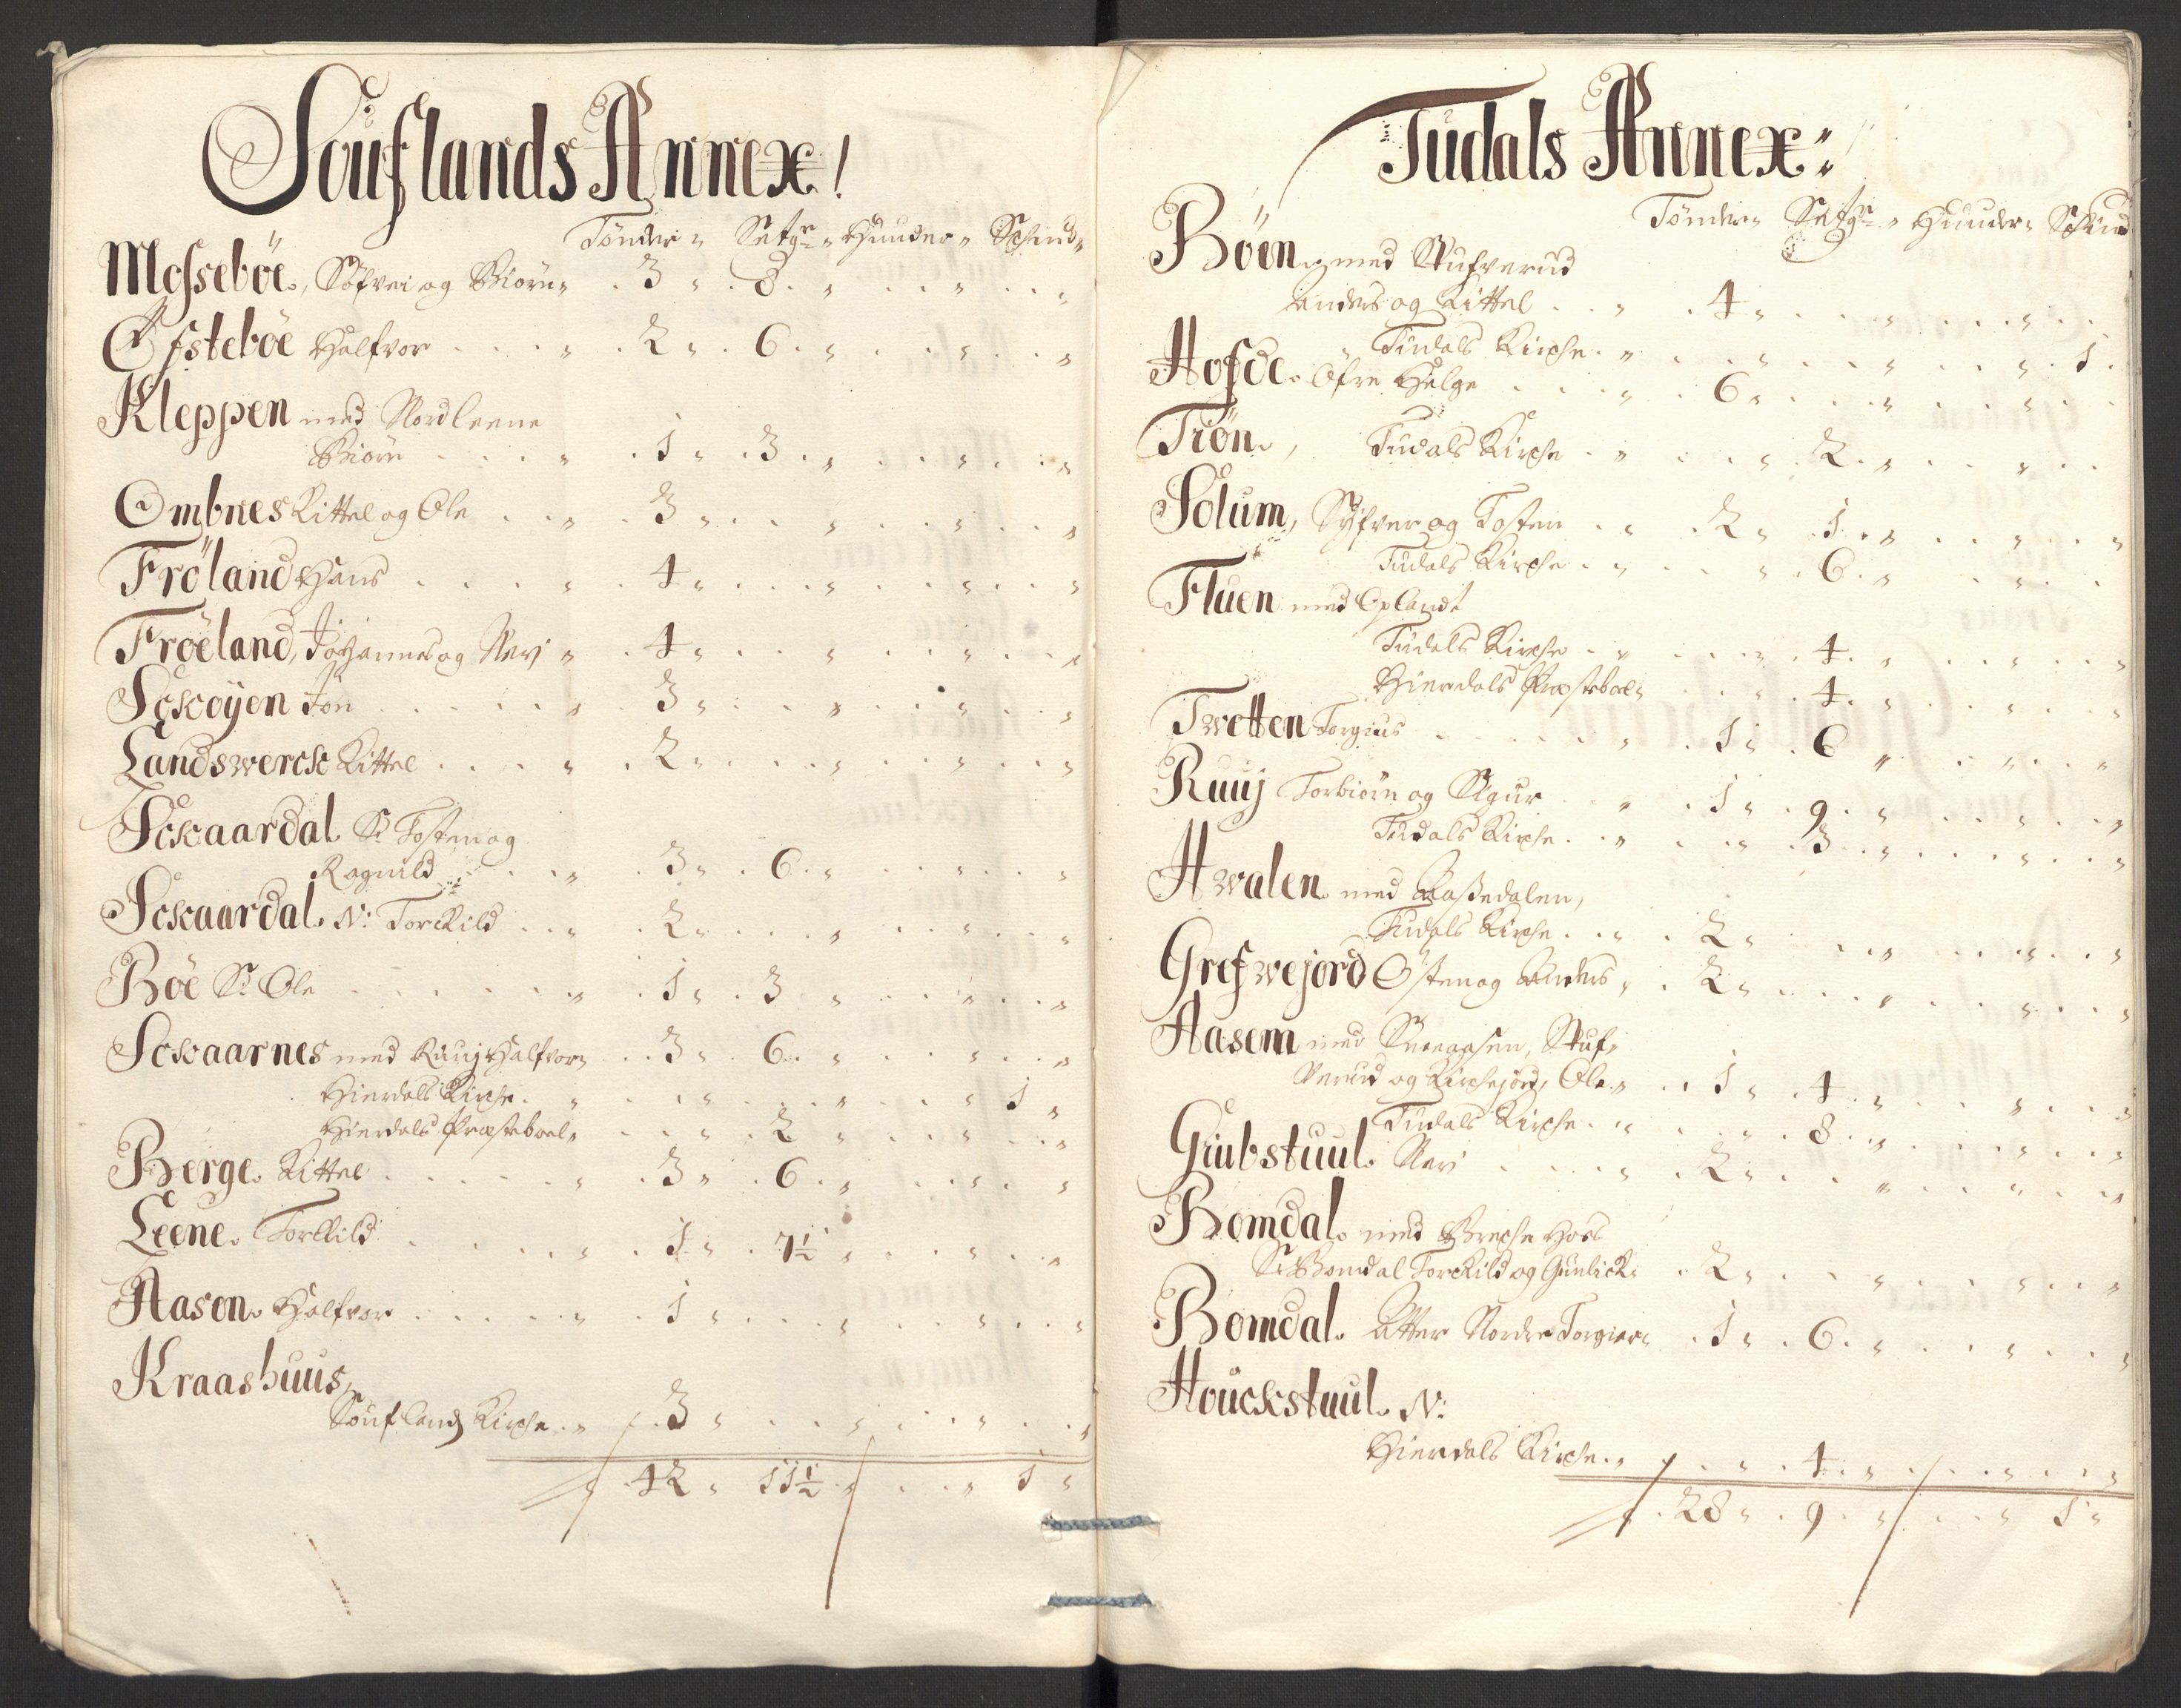 Souflands Annex!
Tønder „ Setgr „ Huuder „ Schind„
Mosseböe, Søfrei og Biørn „ 3 „ 8 „ „ „
Ofsteböe Halfvor „ 2 „ 6 „ „ „
Kleppen med Nordleene
Biørn „ 1 „ 3 „ „ „
Ombnes Kittel og Ole „ 3 „ „ „ „
Fröland Hans „ 4 „ „ „ „
Fröeland, Johannes og Navj „ 4 „ „ „ „
Sckoyen Jon „ 3 „ „ „ „
Landswerck Kittel „ 2 „ „ „ „
Sckaardal Sr Tosten og
Rognild „ 3 „ 6 „ „ „
Sckaardal N: Torckild „ 2 „ „ „ „
Böe Sr Ole „ 1 „ 3 „ „ „
Sckaarnes med Ruuj Halfvor „ 3 „ 6 „ „ „
Hierdals Kirche „ „ „ „ 1 „
Hierdals Præsteboel „ „ 2 „ „ „
Berge Kittel „ 3 „ 6 „ „ „
Leene Torckild „ 1 „ 7½ „ „ „
Aason Halfvor „ 1 „ „ „ „
Kraashuus,
Soufland Kirche „ 3 „ „ „ „
„ 42 „ 11½ „ „ 1 „
Tudals Annex„
Tønder „ Setgr „ Huuder „ Schind
Böen med Stufverud
Anders og Kittel „ 4 „ „ „
Tudals Kirche „ „ „ „ 1
Hofde Øfre Helge „ 6 „ „ „
Trön, Tudals Kirche „ „ 2 „ „
Solum, Syfver og Tosten „ 2 „ 1 „ „ „
Tudals Kirche „ „ 6 „ „
Fluen med Oplandt
Tudals Kirche „ „ 4 „ „ „
Hierdals Præsteboel „ „ 4 „ „ „
Twetten Torgius „ 1 „ 6 „ „ „
Ruuj Torbiørn og Sigur „ 1 „ 9 „ „ „
Tudals Kirche „ „ 3 „ „ „
Hwalen med Bassedalen,
Tudals Kirche „ 2 „ „ „ „
Grefwejord Østen og Anders „ 2 „ „ „ „
Aasem med Sneaasen, Stuf„
verud og Kirchejord, Ole „ 1 „ 4 „ „ „
Tudals Kirche „ „ 8 „ „ „
Grubstuul Navj „ 2 „ „ „ „
Bomdal med Breche Hos
Sr Bomdal Torckild og Gunlick „ 2 „ „ „ „
Bomdal Atter Nordre Torgier „ 1 „ 6 „ „ „
Houckstuul N:
Hierdals Kirche „ „ 4 „ „ „
„ 28 „ 9 „ „ 1 „